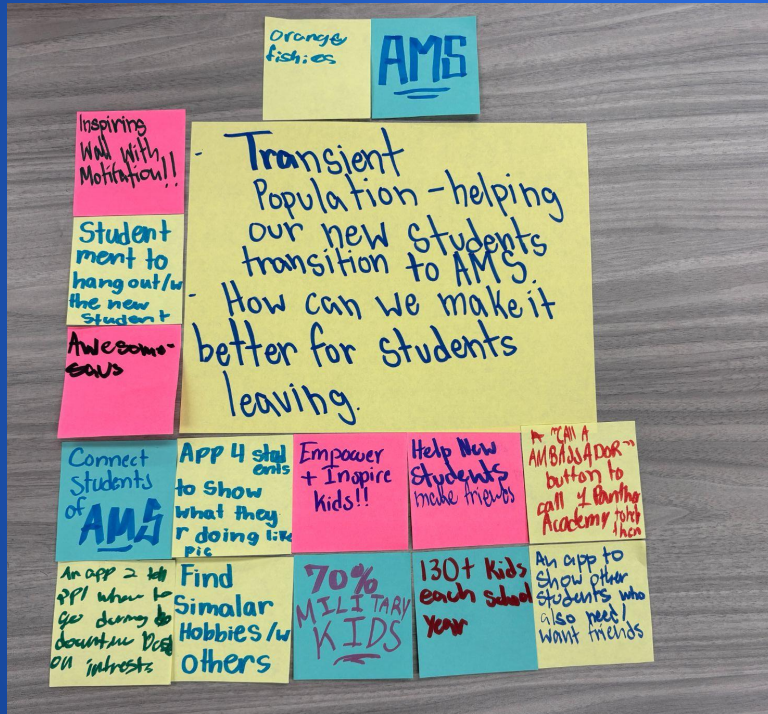 orange
fishies
AMS
Inspiring
Wall With
Motitation!!
- Transient
Population - helping
our new students
transition to AMS.
- How can we make it
better for students
leaving.
Student
ment to
hang out/w
the new
student
Awesome-
saus
Connect
Students
of AMS
App 4 stud
ents
to show
what they
r doing like
pic
Empower
+ Inspire
kids!!
Help New
Students
make friends
A "CAll A
AMBASSADOR"
button to
call 1 Panther
Academy to help
them
An app 2 tell
ppl where to
go during
downtime
on intrests
Find
Simalar
Hobbies /w
others
70%
MILITARY
KIDS
130+ kids
each school
year
An app to
show other
students who
also need/
want friends